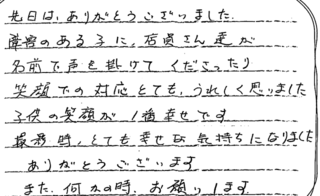 先日は、ありがとうございました。
障害のある子に、店員さん達が
名前で声を掛けてくださったり
笑顔での対応とても、うれしく思いました
子供の笑顔が1番幸せです
最終時、とても幸せな気持ちになりました
ありがとうございます
また、何かの時、お願いします